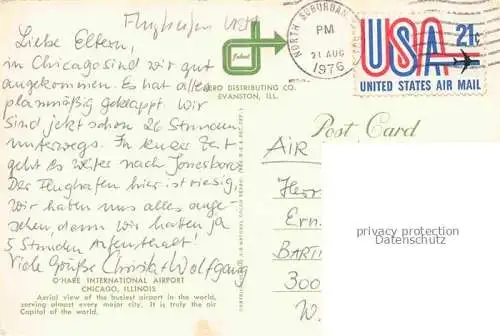 Flughafen
Liebe Eltern,
in Chicago sind wir gut
angekommen. Es hat alles
planmäßig geklappt. Wir
sind jetzt schon 26 Stunden
unterwegs. In kurzer Zeit
geht es weiter nach Jonesboro.
Der Flughafen hier ist riesig,
wir haben uns alles ange-
sehen, denn wir hatten ja
5 Stunden Aufenthalt!
Viele Grüße Christa + Wolfgang
O'HARE INTERNATIONAL AIRPORT
CHICAGO, ILLINOIS
Aerial view of the busiest airport in the world,
serving almost every major city. It is truly the air
Capitol of the world.
AERO DISTRIBUTING CO.
EVANSTON, ILL.
NORTH SUBURBAN
PM
21 AUG
1976
USA 21c
UNITED STATES AIR MAIL
Post Card
AIR
Herr
Ern.
BARTI
300
W.
privacy protection
Datenschutz